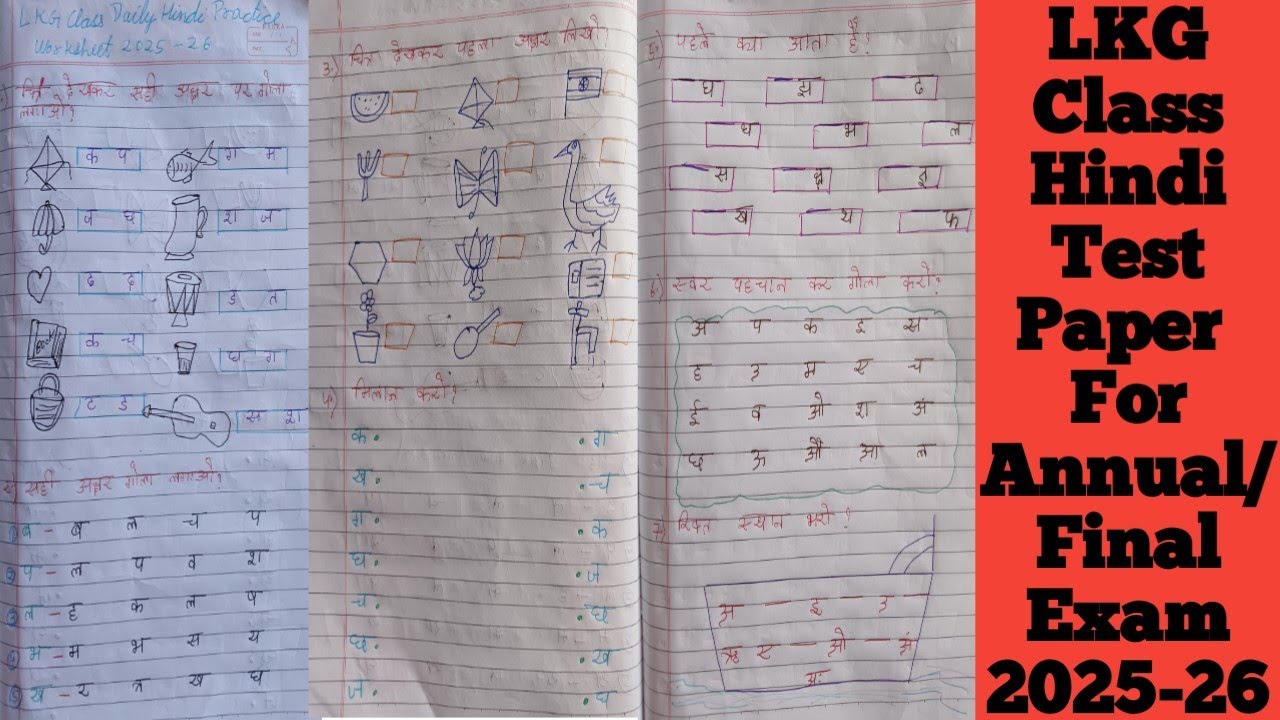 LKG Class Daily Hindi Practice
Worksheet 2025-26
चित्र देखकर सही अक्षर पर गोला
लगाओ?
क प
ग म
ज छ
श ज
ढ द
ड त
क च
घ ग
ट ड
स श
२) सही अक्षर गोला लगाओ?
① ब - ब ल च प
② प - ल प व श
③ ल - ह क ल ष
④ भ - म भ स य
⑤ ख - र त्र ख घ
३) चित्र देखकर पहला अक्षर लिखो?
४) मिलान करो?
क. .ग
ख. .च
ग. .क
घ. .ज
च. .छ
छ. .ख
ज. .घ
५) पहले क्या आता है?
घ झ ढ
ध भ ल
स क्ष ज्ञ
ख थ फ
६) स्वर पहचान कर गोला करो?
अ प क इ स
ह उ म ए च
ई व ओ श अं
छ ऊ औ आ ल
7) रिक्त स्थान भरो?
अ — इ — उ —
ऋ ए — ओ — अं
अः
LKG
Class
Hindi
Test
Paper
For
Annual/
Final
Exam
2025-26